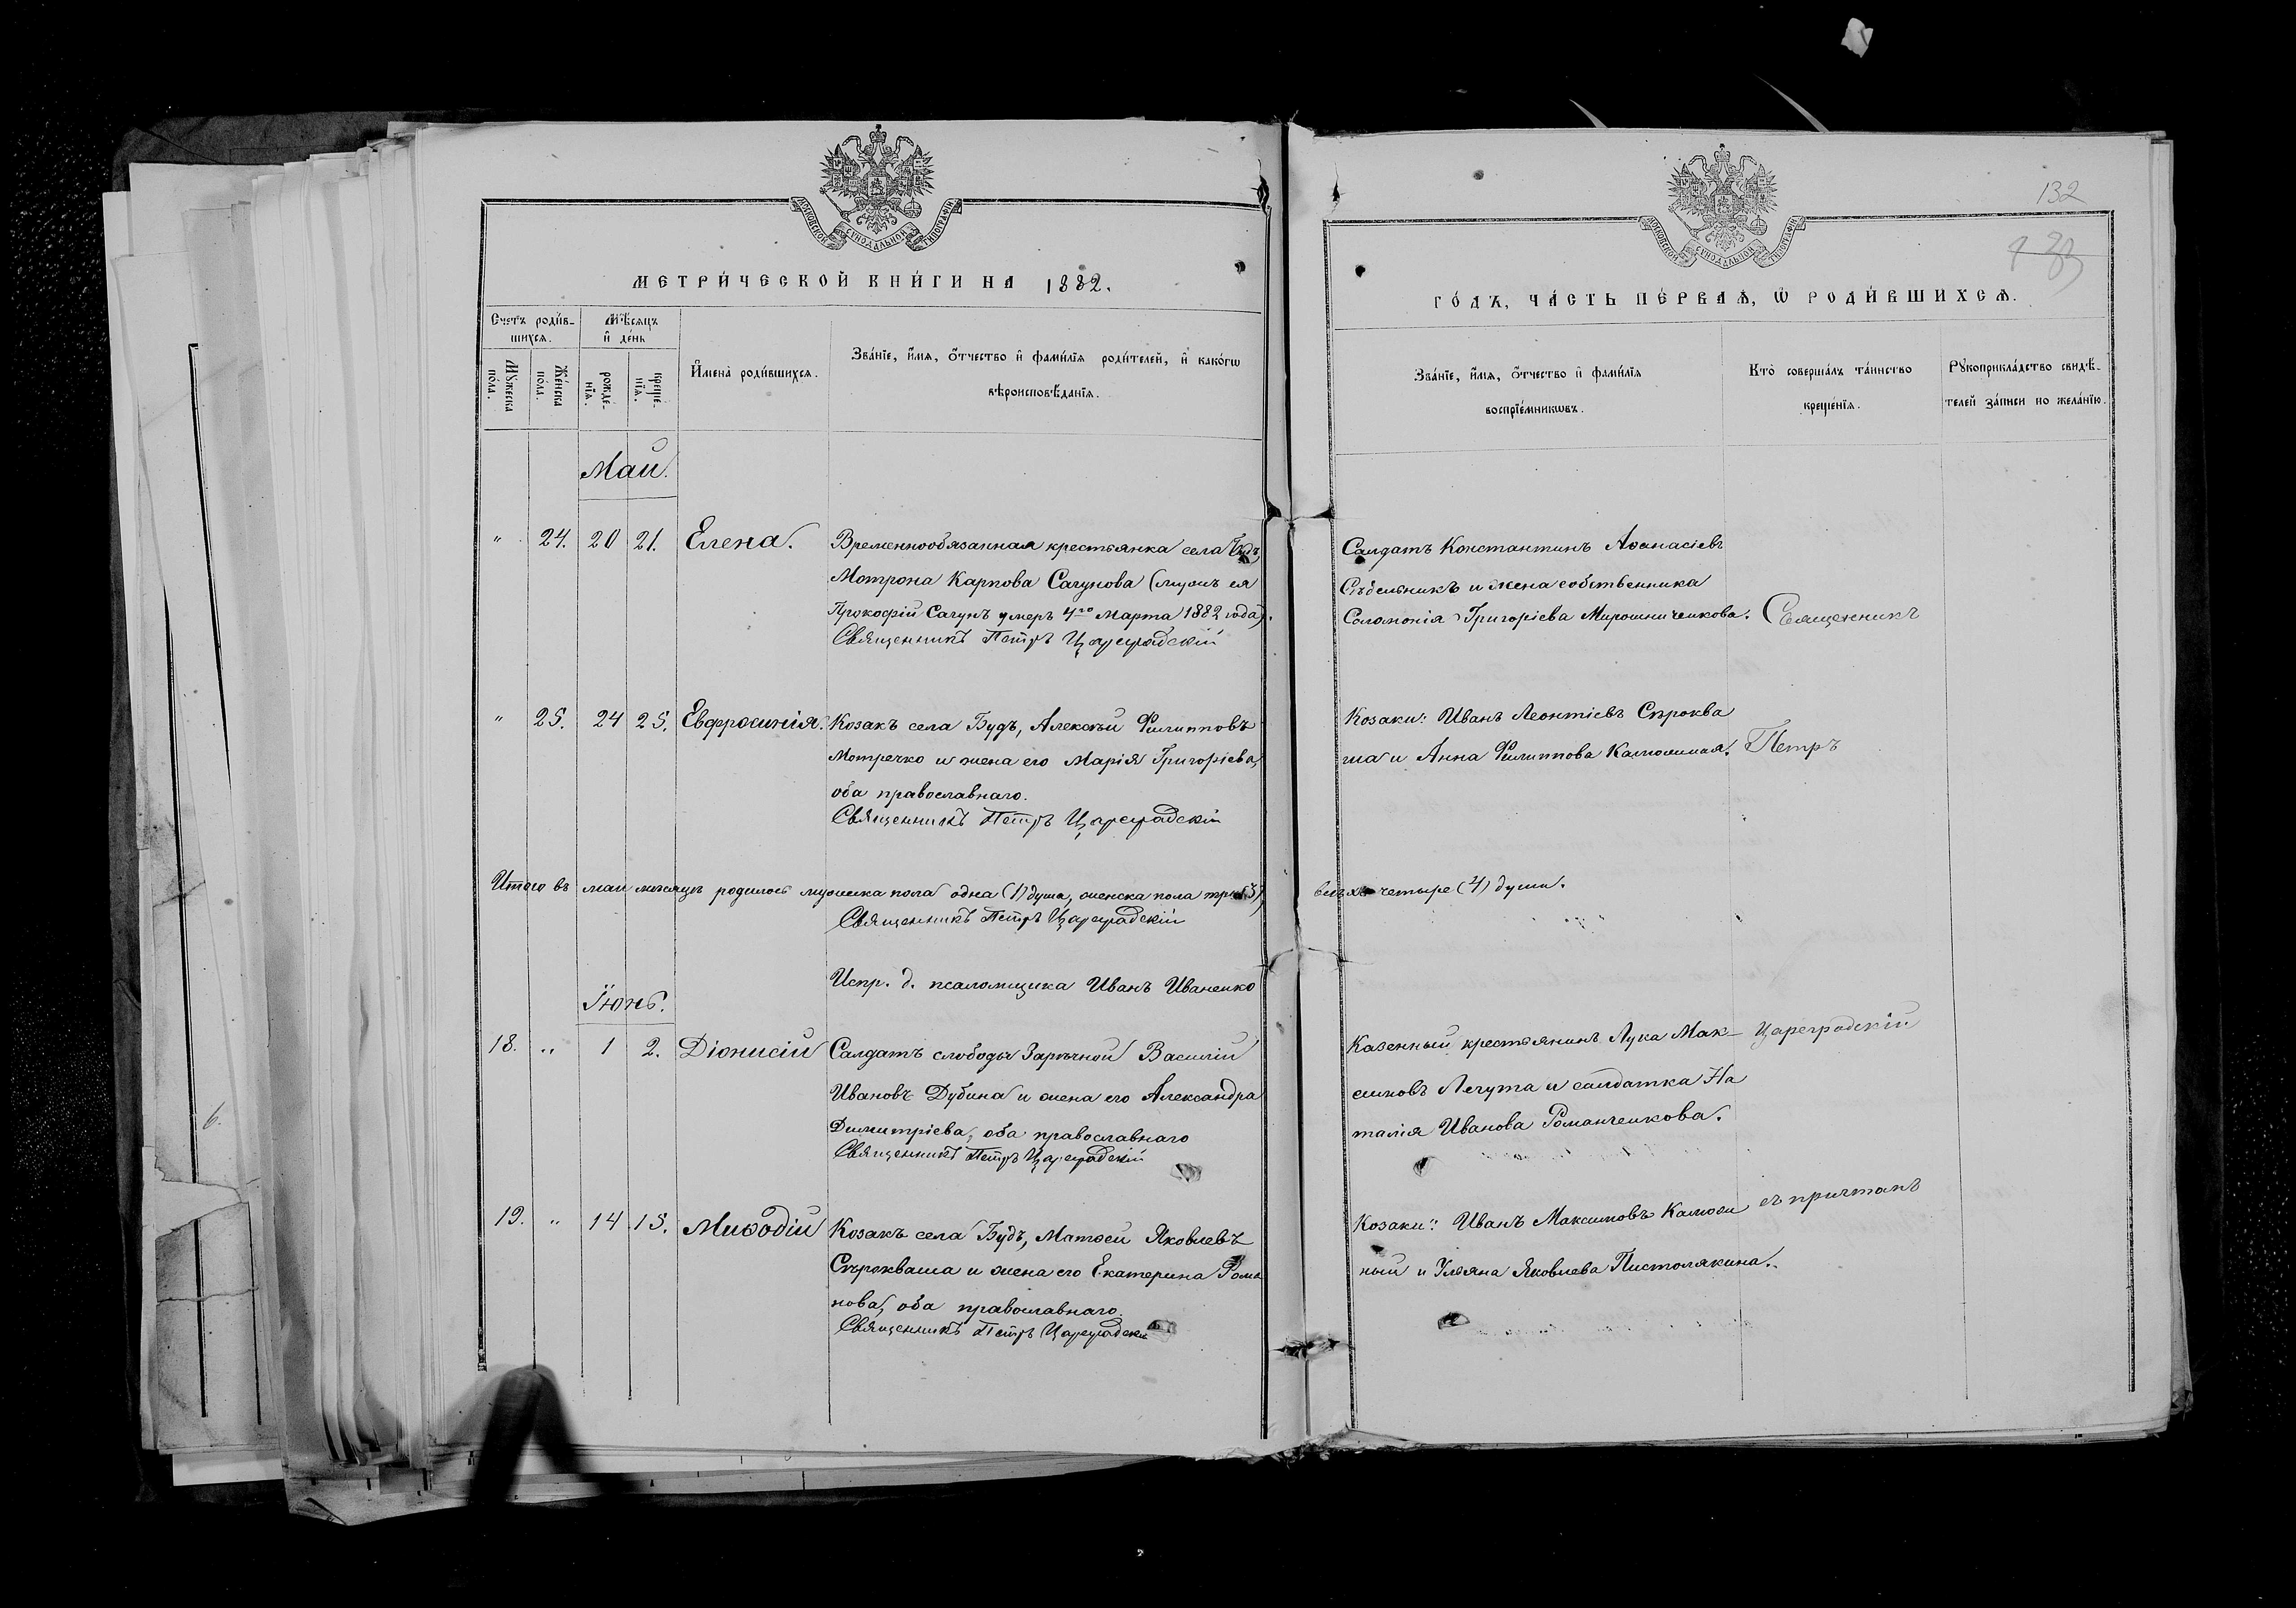 МОСКОВСКОЙ СѴНОДАЛЬНОЙ ТИПОГРАФІИ
МЕТРИ́ЧЕСКОЙ КНИ́ГИ НА 1882.
Счетъ роди́в-
шихся.
Мѣ́сяцъ
и҆ де́нь
Мꙋ́жеска
по́ла.
Же́нска
по́ла.
рожде́-
нїѧ.
креще́-
нїѧ.
И҆мена̀ роди́вшихся.
Зва́нїе, и҆́мя, ѻ҆́тчество и҆ фами́лїя роди́телей, и҆ како́гѡ
вѣроисповѣ́данїя.
Май.
" 24. 20 21. Елена. Временнообязанная крестьянка села Будъ,
Мотрона Карпова Сагунова (мужъ ея
Прокофій Сагунъ умеръ 4го Марта 1882 года).
Священникъ Петръ Цареградскій
" 25. 24 25. Евфросинія. Козакъ села Будъ, Алексѣй Филипповъ
Мотречко и жена его Марія Григоріева,
оба православнаго.
Священникъ Петръ Цареградскій
Итого въ маи мѣсяцѣ родилось мужеска пола одна (1) душа, женска пола три (3),
Священникъ Петръ Цареградскій
Испр. д. псаломщика Иванъ Иваненко
Іюнь.
18. " 1 2. Діонисій Салдатъ слободы Зарѣчной Василій
Ивановъ Дубина и жена его Александра
Димитріева, оба православнаго
Священникъ Петръ Цареградскій
19. " 14 15. Миѳодій Козакъ села Будъ, Матѳей Яковлевъ
Сѣрокваша и жена его Екатерина Рома
нова, оба православнаго.
Священникъ Петръ Цареградскій
132
МОСКОВСКОЙ СѴНОДАЛЬНОЙ ТИПОГРАФІИ
ГО́ДЪ, ЧА́СТЬ ПЕ́РВАѦ, Ѡ҆ РОДИ́ВШИХСѦ.
Зва́нїе, и҆́мя, ѻ҆́тчество и҆ фами́лїя
воспрїе́мникѡвъ.
Кто̀ соверша́лъ та́инство
креще́нїя.
Рꙋкоприкла́дство свидѣ́-
телей за́писи по жела́нїю.
Салдатъ Константинъ Аѳанасіевъ
и жена собственника
Соломонія Григоріева Мирошниченкова. Священникъ
Козаки: Иванъ Леонтіевъ Сѣроква
ша и Анна Филиппова Петръ
всѣхъ четыре (4) души.
Казенный крестьянинъ Лука Мак- Цареградскій
симовъ Легута и салдатка На
талія Иванова Романченкова.
Козаки: Иванъ Максимовъ съ причтомъ
ный и Уляна Яковлева Пистолякина.
6.